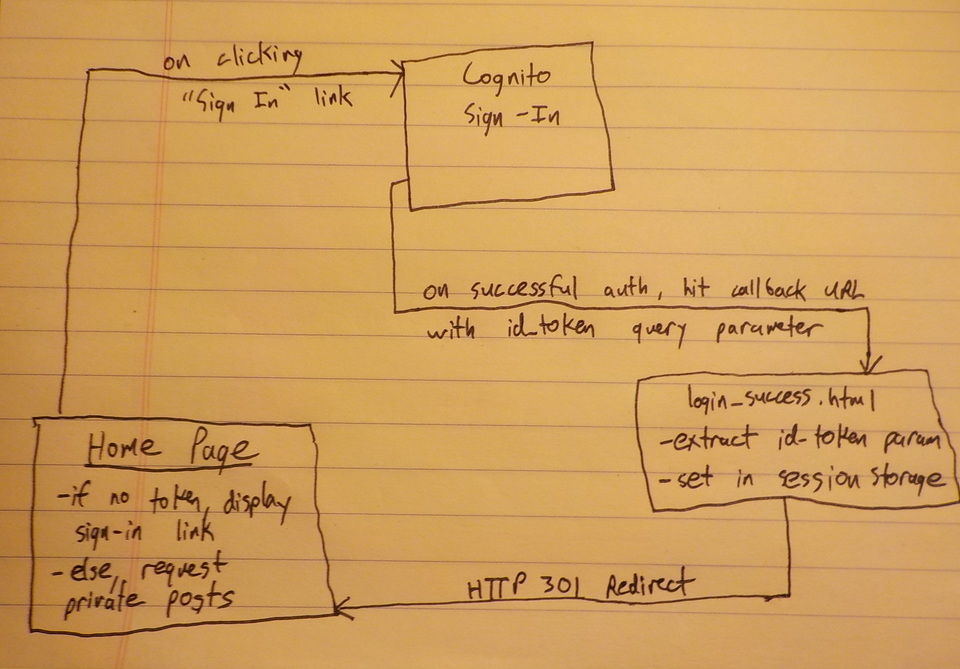 on clicking
"Sign In" link
Cognito
Sign-In
on successful auth, hit callback URL
with id_token query parameter
login_success.html
-extract id-token param
-set in session storage
Home Page
-if no token, display
sign-in link
-else, request
private posts
HTTP 301 Redirect